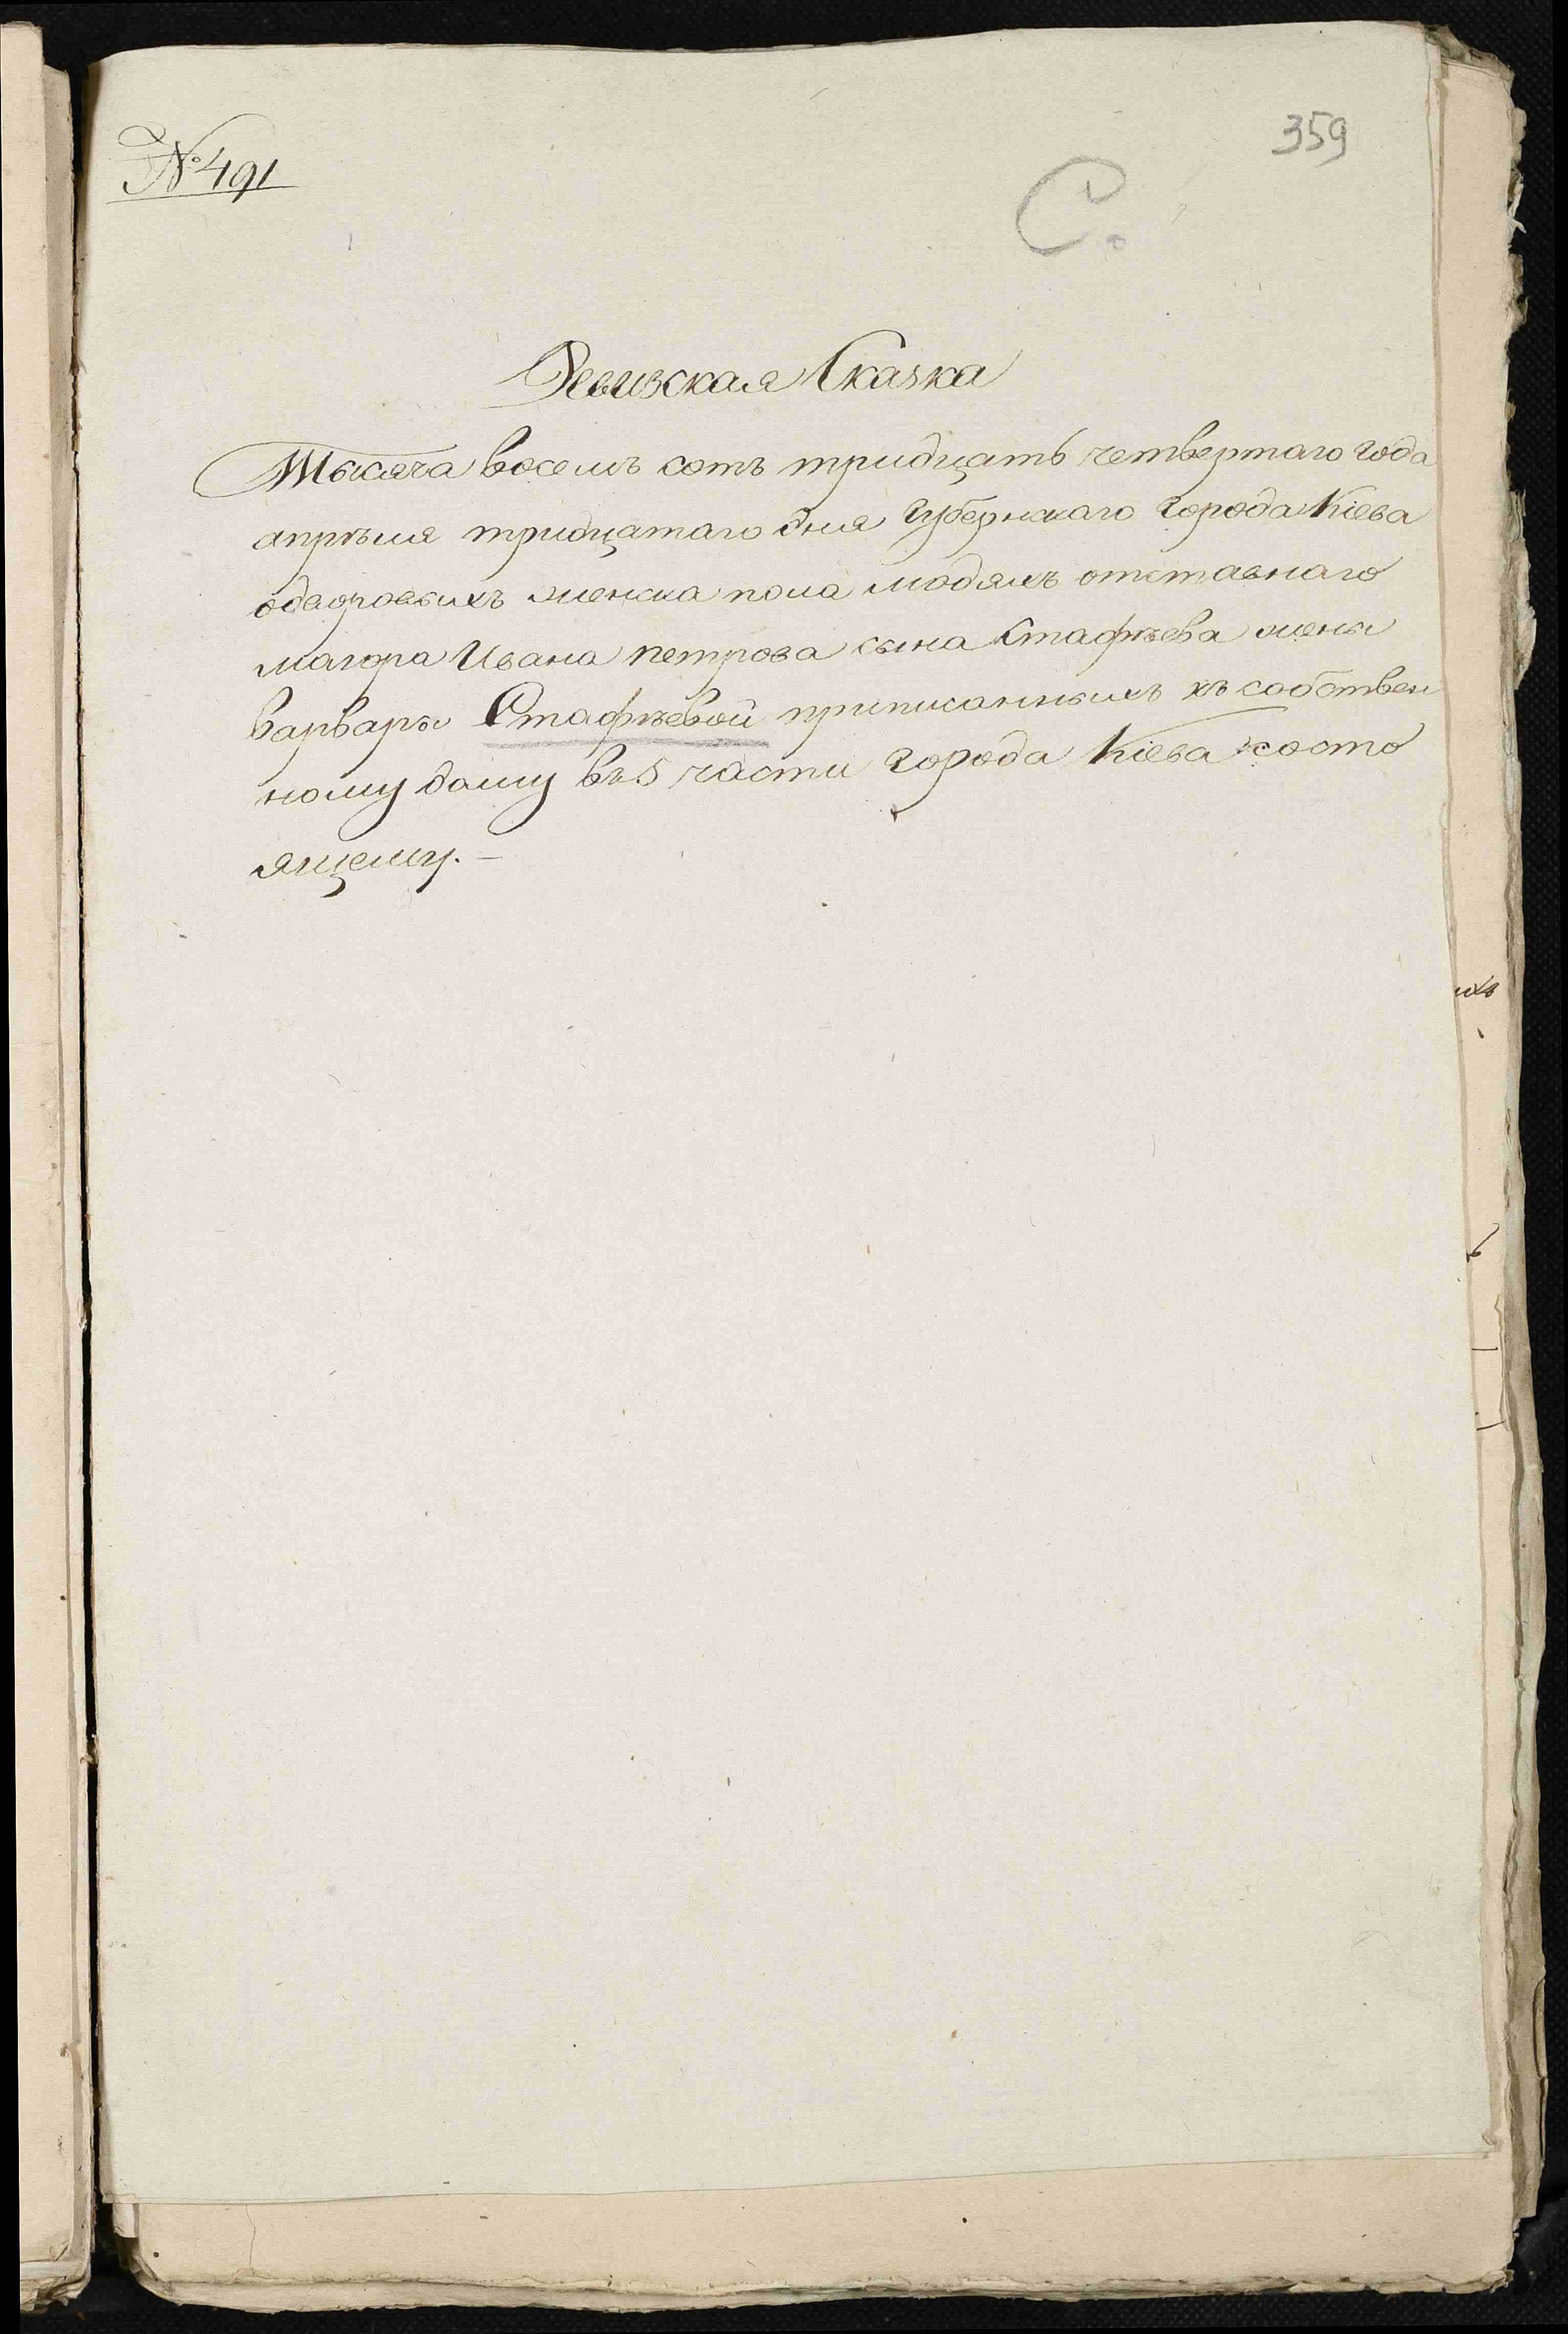 № 491
359
С.
Ревизская Сказка
Тысяча восемъ сотъ тридцать четвертаго года
апрѣля тридцатаго дня Губернскаго города Кіева
одворовыхъ женска пола людяхъ отставнаго
маіора Ивана петрова сына Стафѣева жены
варвары Стафѣевой приписанныхъ къ собствен
ному дому въ 5 части города Кіева состо
ящему. —
ихъ